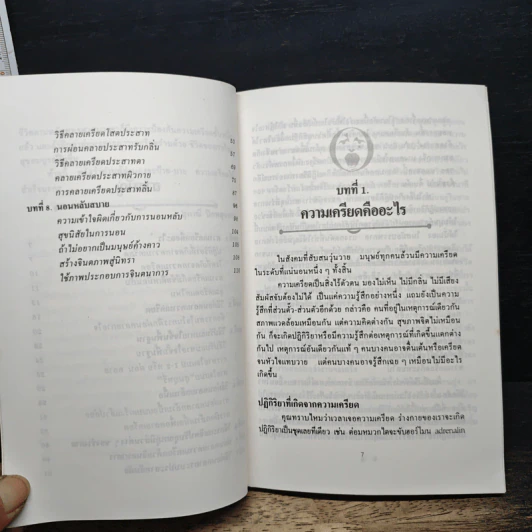 วิธีคลายเครียดโสตประสาท
การผ่อนคลายประสาทรับกลิ่น
วิธีคลายเครียดประสาทตา
คลายเครียดประสาทผิวกาย
การคลายเครียดประสาทลิ้น
บทที่ 8. นอนหลับสบาย
ความเข้าใจผิดเกี่ยวกับการนอนหลับ
สุขนิสัยในการนอน
ถ้าไม่อยากเป็นมนุษย์ค้างคาว
สร้างจินตภาพสู่นิทรา
ใช้ภาพประกอบการจินตนาการ
บทที่ 1.
ความเครียดคืออะไร
ในสังคมที่สับสนวุ่นวาย มนุษย์ทุกคนล้วนมีความเครียด
ในระดับที่แน่นอนหนึ่ง ๆ ทั้งสิ้น
ความเครียดเป็นสิ่งไร้ตัวตน มองไม่เห็น ไม่มีกลิ่น ไม่มีเสียง
สัมผัสจับต้องไม่ได้ เป็นแค่ความรู้สึกอย่างหนึ่ง แถมยังเป็นความ
รู้สึกที่ส่วนตั๊ว-ส่วนตัวอีกด้วย กล่าวคือ คนที่อยู่ในเหตุการณ์เดียวกัน
สภาพแวดล้อมเหมือนกัน แต่ความคิดต่างกัน สุขภาพจิตไม่เหมือน
กัน ก็จะเกิดปฏิกิริยาหรือมีความรู้สึกต่อเหตุการณ์ที่เกิดขึ้นแตกต่าง
กันไป เหตุการณ์อันเดียวกันแท้ ๆ คนบางคนอาจตื่นเต้นหรือเครียด
จนหัวใจแทบวาย แต่คนบางคนอาจรู้สึกเฉย ๆ เหมือนไม่มีอะไร
เกิดขึ้น
ปฏิกิริยาที่เกิดจากความเครียด
คุณทราบไหมว่าเวลาเจอความเครียด ร่างกายของเราจะเกิด
ปฏิกิริยาเป็นชุดเลยทีเดียว เช่น ต่อมหมวกไตจะขับฮอร์โมน adrenalin
7